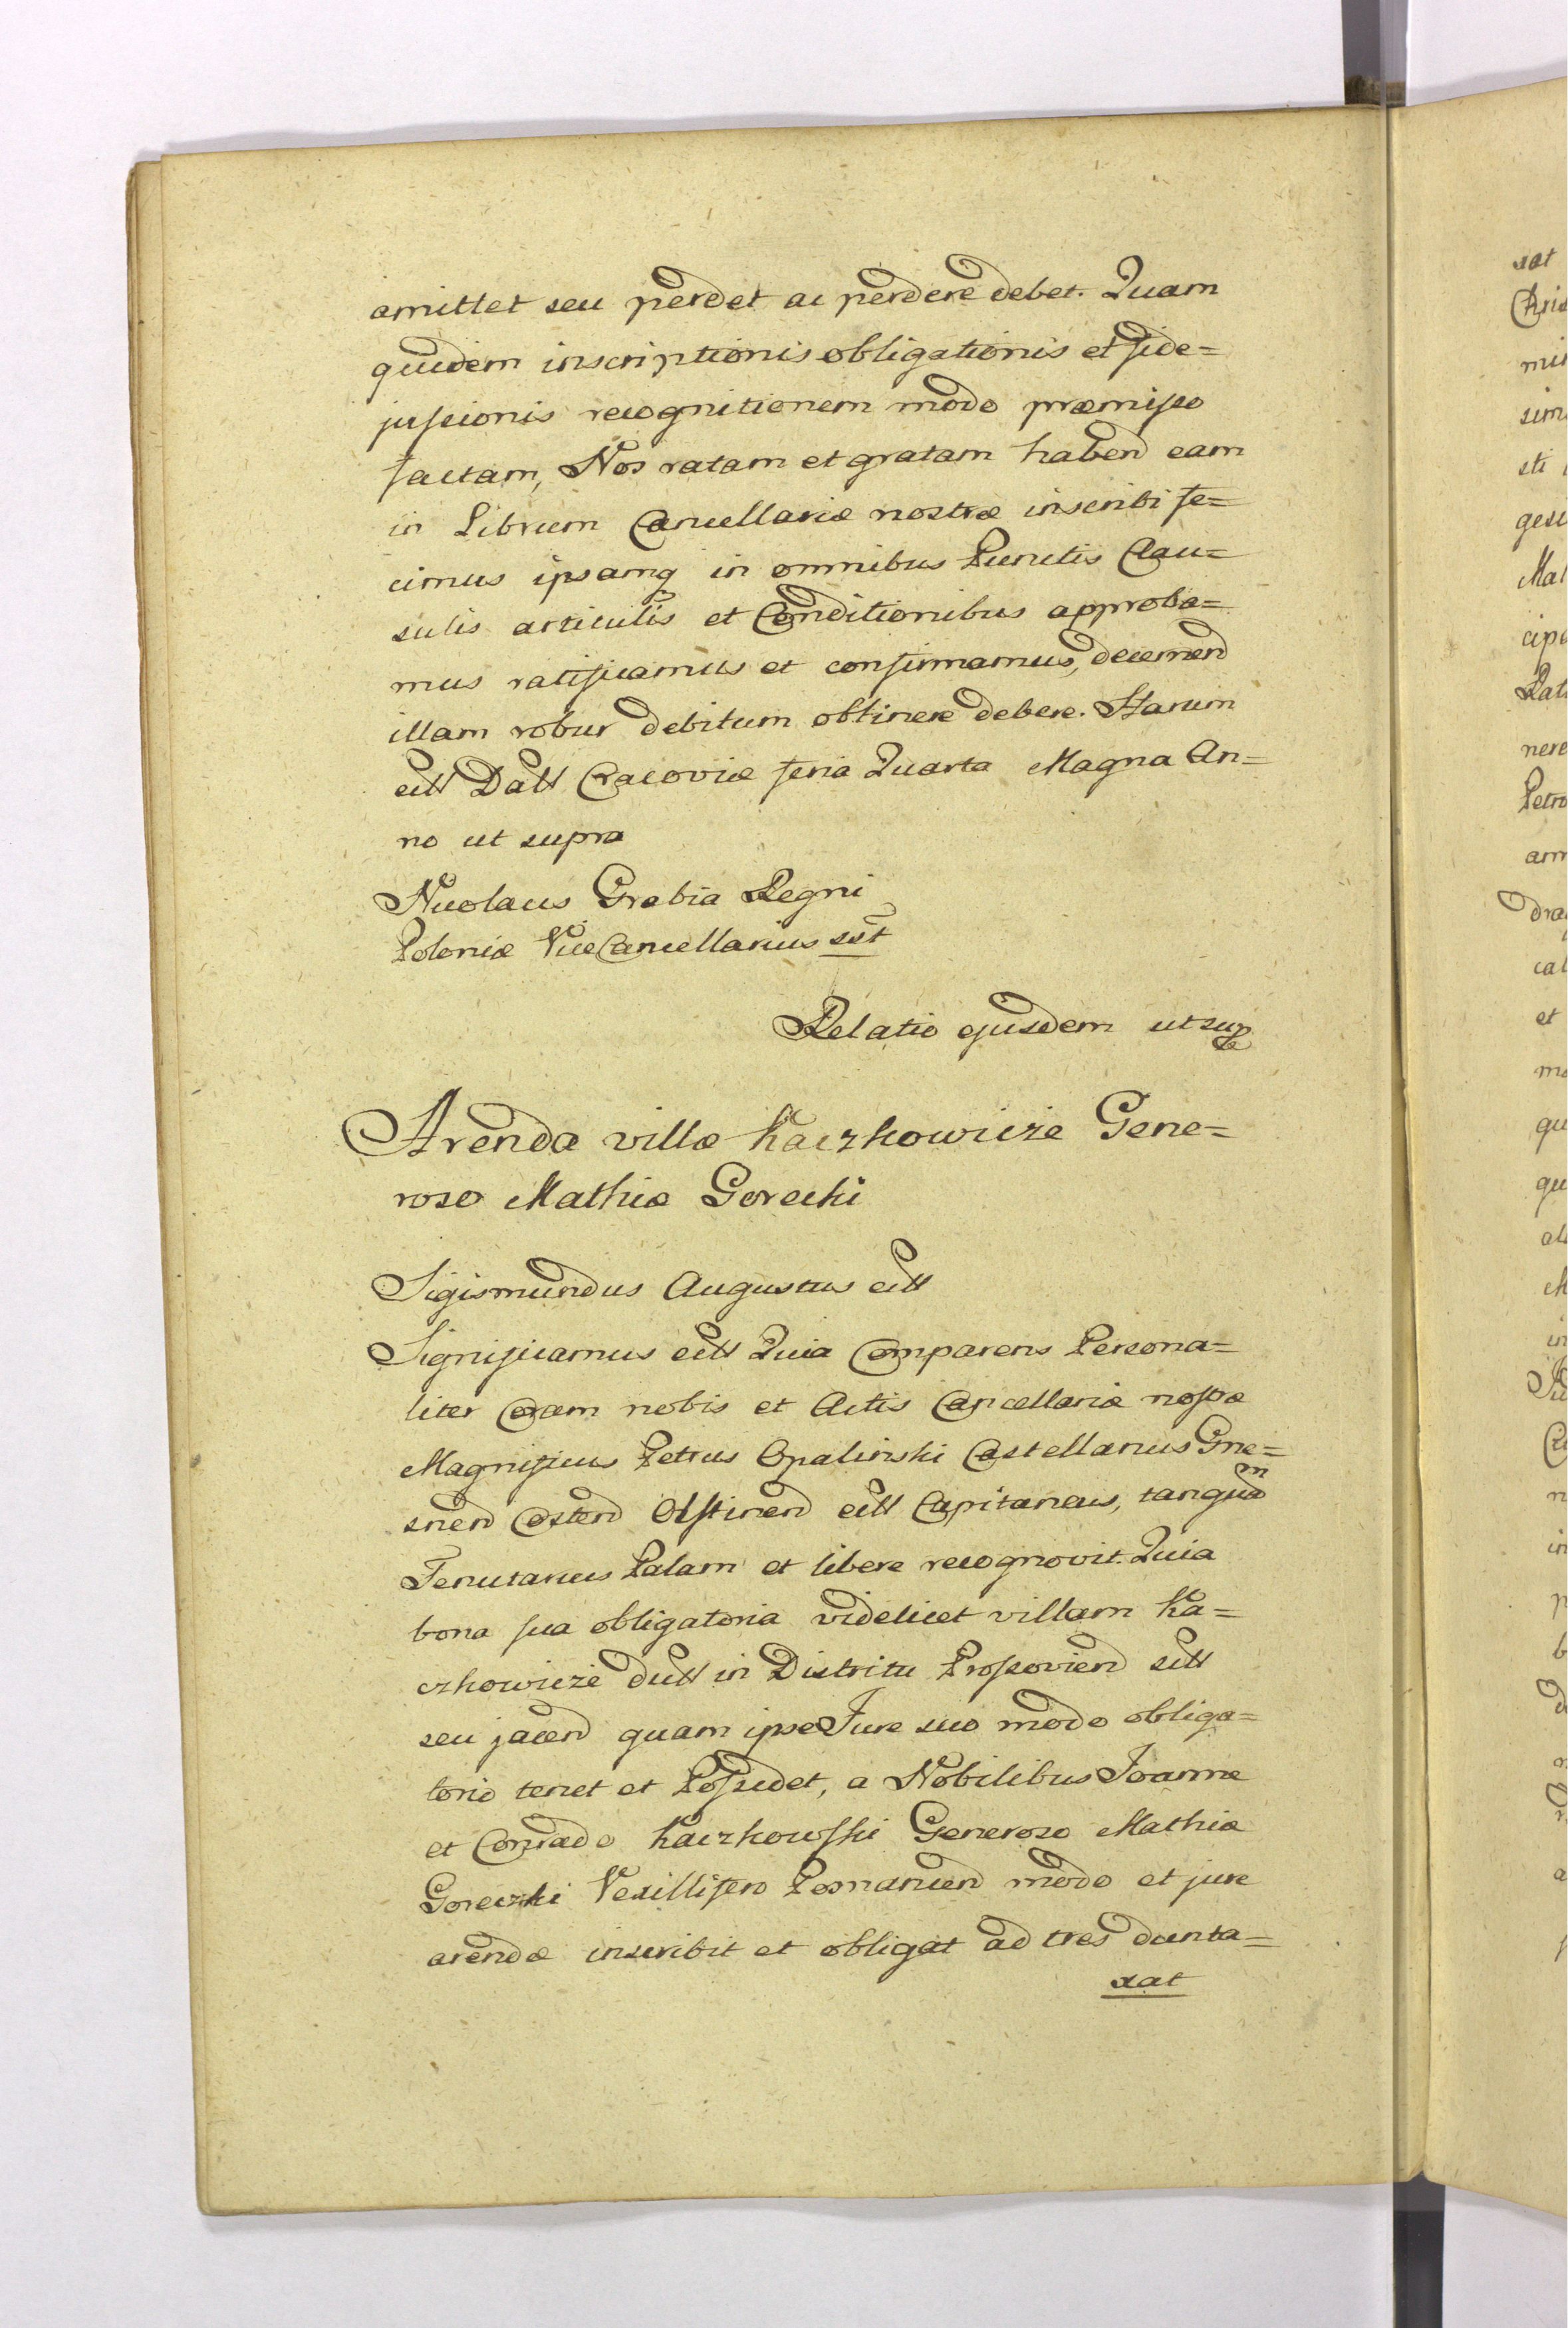 amittet seu perdet ac perdere debet. Quam
quidem inscriptionis obligationis et fide=
jussionis recognitionem modo præmisso
factam, Nos ratam et gratam habend eam
in Librum Cancellariæ nostræ inscribi fe=
cimus ipsamq in omnibus Punctis Clau=
sulis articulis et Conditionibus approba=
mus ratificamus et confirmamus, decernend
illam robur debitum obtinere debere. Harum
ett Datt Cracoviæ feria Quarta Magna An=
no ut supra
Nicolaus Grabia Regni
Poloniæ ViceCancellarius sst
Relatio ejusdem ut sup
Arenda villæ Kaczkowicze Gene=
roso Mathiæ Gorecki
Sigismundus Augustus ett
Significamus ett Quia Comparens Persona=
liter Coram nobis et Actis Cancellariæ nostræ
Magnificus Petrus Opalinski Castellanus Gne=
snen Costen Olstinen ett Capitaneus, tanquam
Tenutarius Palam et libere recognovit. Quia
bona sua obligatoria videlicet villam Ka=
czkowicze dutt in Distritu Prossovien sitt
seu jacend quam ipse Jure suo modo obliga=
torio tenet et Possidet, a Nobilibus Joanne
et Conrado Kaczkowski Generoso Mathiæ
Goreczki Vexillifero Posnanien modo et jure
arendæ inscribit et obligat ad tres dunta=
xat
xat
min
sim
sti
gesi
Mat
nere
Petro
cal
et